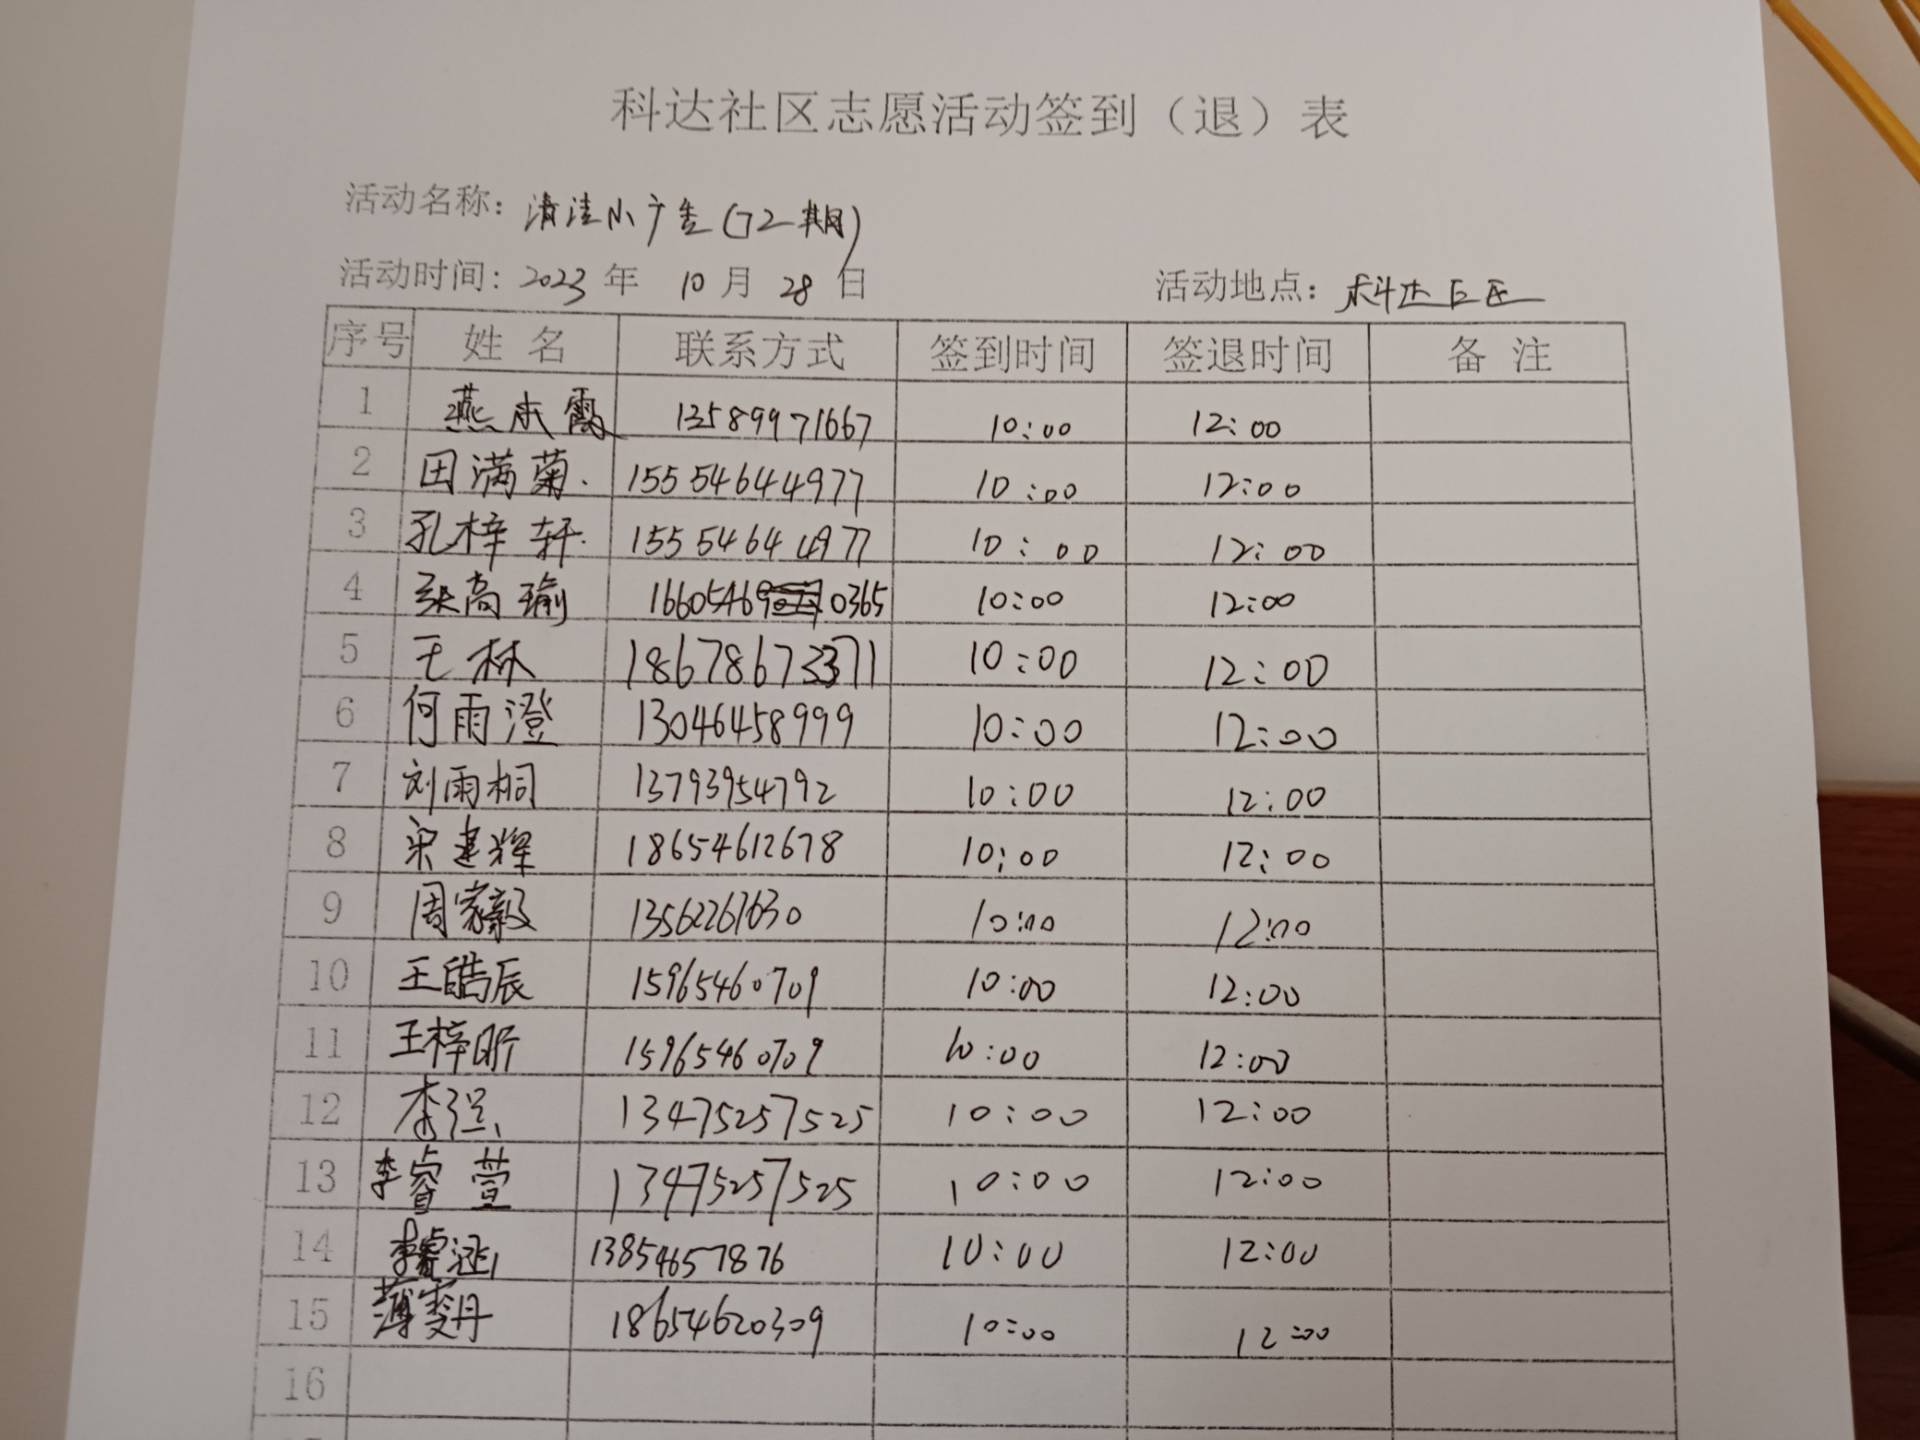 科达社区志愿活动签到（退）表
活动名称：清洁小广告(72期)
活动时间：2023年 10月 28日 活动地点：科达社区
序号 姓名 联系方式 签到时间 签退时间 备注
1 燕本霞 13589971667 10:00 12:00
2 田满菊. 15554644977 10:00 12:00
3 孔梓轩. 15554644977 10:00 12:00
4 张高瑜 16605469 0365 10:00 12:00
5 王林 18678673371 10:00 12:00
6 何雨澄 13046458999 10:00 12:00
7 刘雨桐 13793954792 10:00 12:00
8 宋建辉 18654612678 10:00 12:00
9 周家毅 13562261630 10:00 12:00
10 王皓辰 15965460709 10:00 12:00
11 王梓昕 15965460709 10:00 12:00
12 李强 13475257525 10:00 12:00
13 李睿萱 13475257525 10:00 12:00
14 李睿涵 13854657876 10:00 12:00
15 薄雯丹 18654620309 10:00 12:00
16